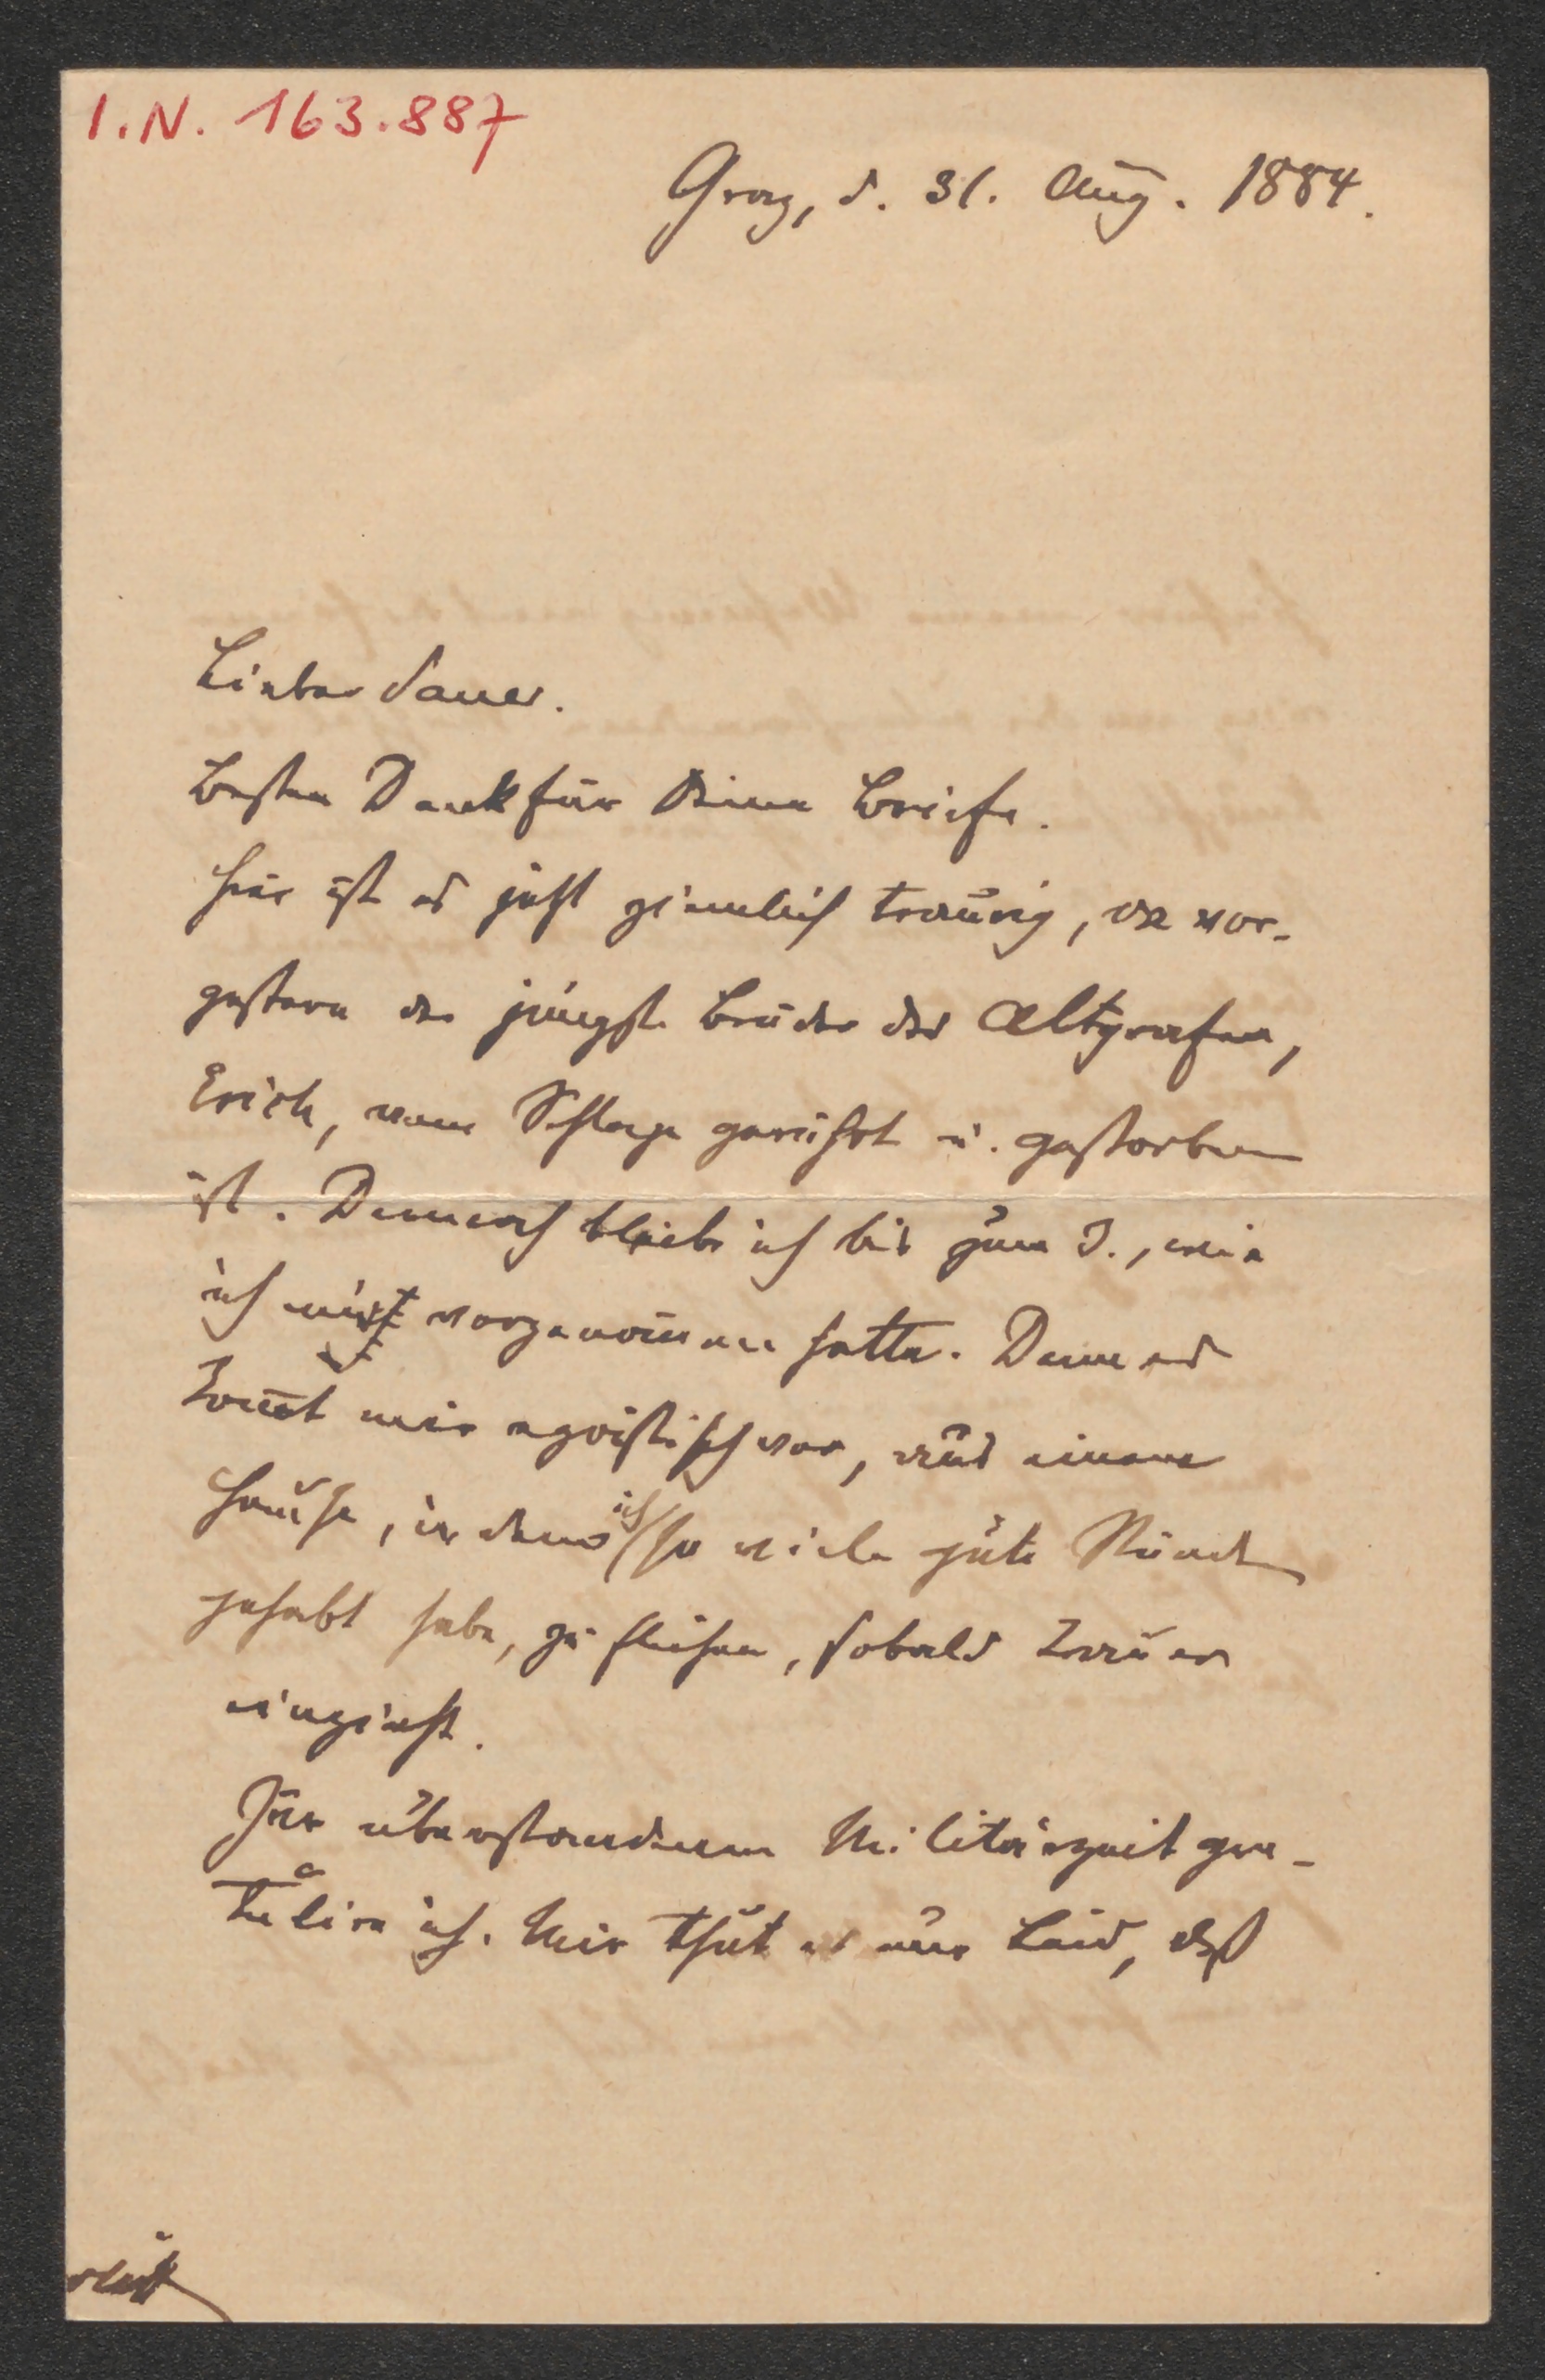 I.N. 163.887
Graz, d. 31. Aug. 1884.
Lieber Sauer.
Besten Dank für Deine Briefe.
Hier ist es jetzt ziemlich traurig, da vor-
gestern der jüngste Bruder des Altgrafen,
Erich, vom Schlage gerührt u. gestorben
ist. Dennoch bleibe ich bis zum 3., wie
ich mir vorgenom̅en hatte. Denn es
kom̅t mir egoistisch vor, aus einem
Hause, in dem ich so viele gute Stunden
gehabt habe, zu fliehen, sobald Trauer
einzieht.
Zur überstandenen Militärzeit gra-
tulire ich. Mir thut es nur Leid, daß